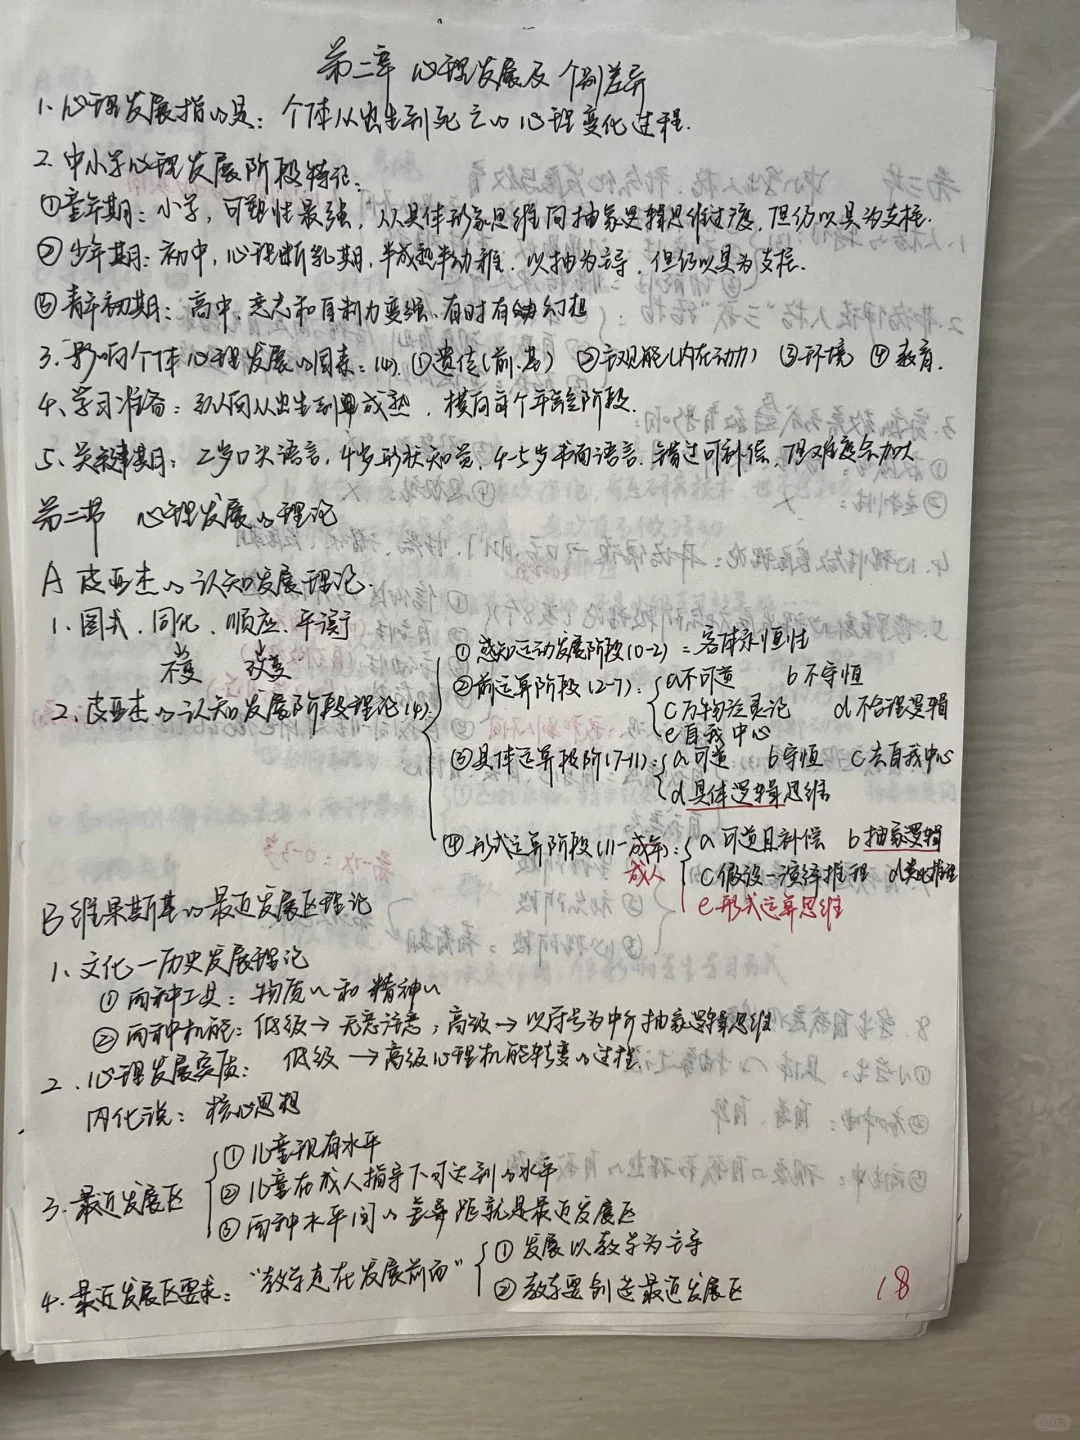 第二章 心理发展及个别差异
1. 心理发展指的是：个体从出生到死亡的心理变化过程.
2. 中小学心理发展阶段特征：
①童年期：小学，可塑性最强，从具体形象思维向抽象逻辑思维过渡，但仍以具为支柱.
②少年期：初中，心理断乳期，半成熟半幼稚. 以抽为主导，但仍以具为支柱.
③青年初期：高中，意志和自制力变强、有时有幻想
3. 影响个体心理发展的因素：(4). ①遗传(前.基) ②主观能(内在动力) ③环境 ④教育.
4. 学习准备：纵向从出生到成熟，横向每个年龄阶段.
5. 关键期：2岁口头语言，4岁形状知觉，4-5岁书面语言. 错过可补偿，但难度会加大
第二节 心理发展的理论
A 皮亚杰的认知发展理论.
1. 图式. 同化. 顺应. 平衡
不变 改变
2. 皮亚杰的认知发展阶段理论(4)
①感知运动发展阶段(0-2) = 客体永恒性
②前运算阶段(2-7)： a不可逆 b不守恒
c万物泛灵论 d不合理逻辑
e自我中心
③具体运算阶段(7-11)： a可逆 b守恒 c去自我中心
d具体逻辑思维
④形式运算阶段(11-成年)： a可逆且补偿 b抽象逻辑
成人 c假设—演绎推理 d类比推理
e.形式运算思维
B维果斯基的最近发展区理论
1. 文化—历史发展理论
①两种工具：物质~和精神~
②两种机能：低级→无意注意；高级→以符号为中介抽象逻辑思维
2. 心理发展实质： 低级→高级心理机能转变的过程.
内化说：核心思想
3. 最近发展区
①儿童现有水平
②儿童在成人指导下可达到的水平
③两种水平间的差异距就是最近发展区
4. 最近发展区要求："教学走在发展前面"
①发展以教学为主导
②教学要创造最近发展区
18
小红书